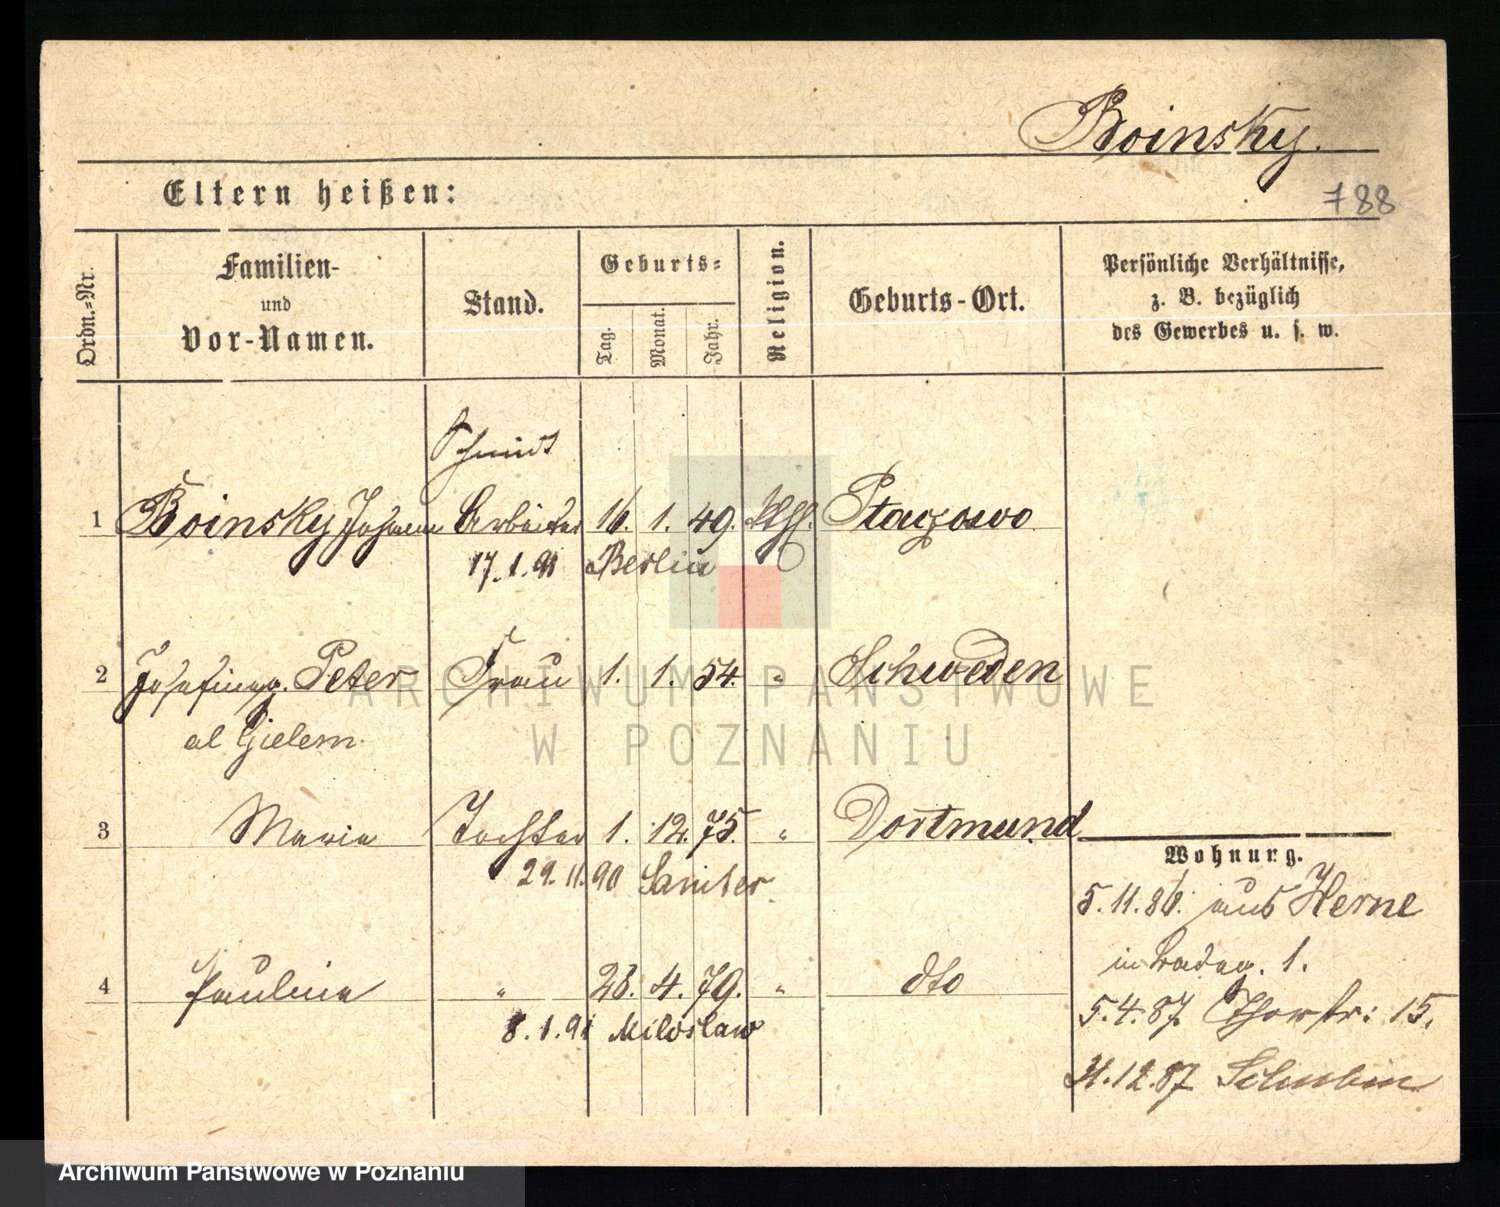 Boinsky.
Eltern heißen:
788
Ordn.-Nr.
Familien-
und
Vor-Namen.
Stand.
Geburts-
Tag.
Monat.
Jahr.
Religion.
Geburts-Ort.
Persönliche Verhältnisse,
z. B. bezüglich
des Gewerbes u. s. w.
Schmidt
1 Boinsky Johann Arbeiter 16. 1. 49. kth.
17.1.91 Berlin
2 Peter Frau 1. 1. 54. " Schweden
al Gielem
3 Maria Tochter 1. 12. 75. " Dortmund
29.11.90 Samter
Wohnung.
5.11.86. aus Herne
in 1.
4 Pauline " 28. 4. 79. " dto
5.4.87 Thorstr: 15.
8.1.91 Miloslaw
31.12.87 Schubin
ARCHIWUM PAŃSTWOWE
W POZNANIU
Archiwum Państwowe w Poznaniu